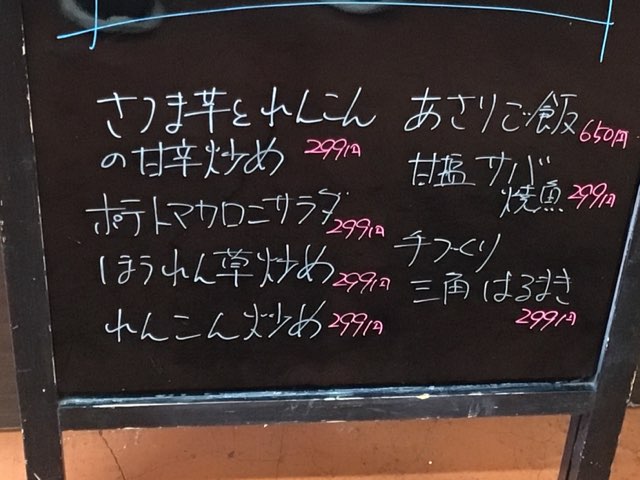 さつま芋とれんこん
の甘辛炒め 299円
ポテトマカロニサラダ 299円
ほうれん草炒め 299円
れんこん炒め 299円
あさりご飯 650円
甘塩サバ
焼魚 299円
手づくり
三角はるまき
299円